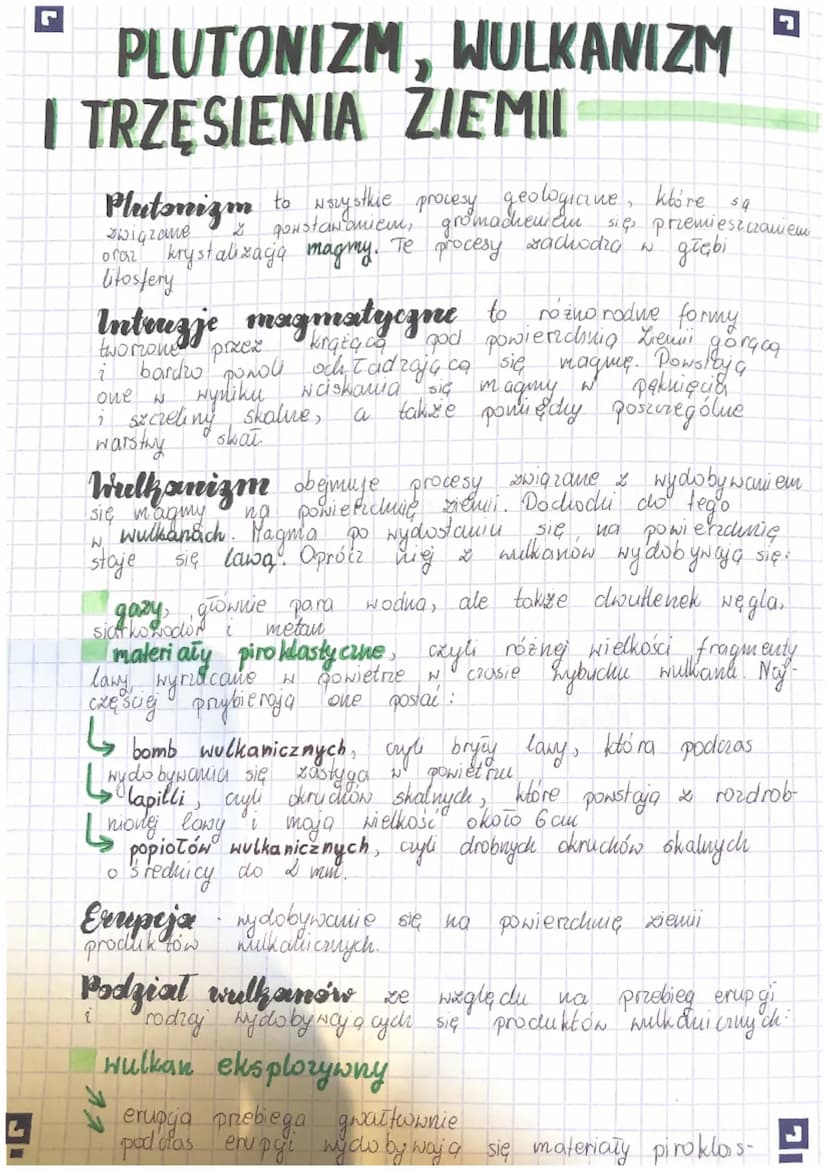 PLUTONIZM, WULKANIZM
I TRZĘSIENIA ZIEMII
Plutonizm to wszystkie procesy geologiczne, które są
związane z powstawaniem, gromadzeniem się, przemieszczaniem
oraz krystalizacją magmy. Te procesy zachodzą w głębi
litosfery
Intruzje magmatyczne to różnorodne formy
tworzone przez krążącą pod powierzchnią Ziemii gorącą
i bardzo powoli ochładzającą się magmę. Powstają
one w wyniku wciskania się magmy w pęknięcia
i szczeliny skalne, a także pomiędzy poszczególne
warstwy skał.
Wulkanizm obejmuje procesy związane z wydobywaniem
się magmy na powierzchnię ziemii. Dochodzi do tego
w wulkanach. Magma po wydostaniu się na powierzchnię
staje się lawą. Oprócz niej z wulkanów wydobywają się:
gazy, głównie para wodna, ale także dwutlenek węgla,
siarkowodór i metan
materiały piroklastyczne, czyli różnej wielkości fragmenty
lawy wyrzucane w powietrze w czasie wybuchu wulkanu. Naj-
częściej przybierają one postać:
bomb wulkanicznych, czyli bryły lawy, która podczas
wydobywania się zastyga w powietrzu
lapilli, czyli okruchów skalnych, które powstają z rozdrob-
nionej lawy i mają wielkość około 6 cm
popiołów wulkanicznych, czyli drobnych okruchów skalnych
o średnicy do 2 mm.
Erupcja - wydobywanie się na powierzchnię ziemii
produktów wulkanicznych.
Podział wulkanów ze względu na przebieg erupcji
i rodzaj wydobywających się produktów wulkanicznych:
wulkan eksplozywny
erupcja przebiega gwałtownie
podczas erupcji wydobywają się materiały piroklas-